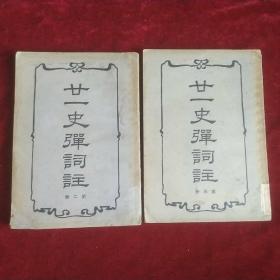 廿一史彈詞註
第二冊
廿一史彈詞註